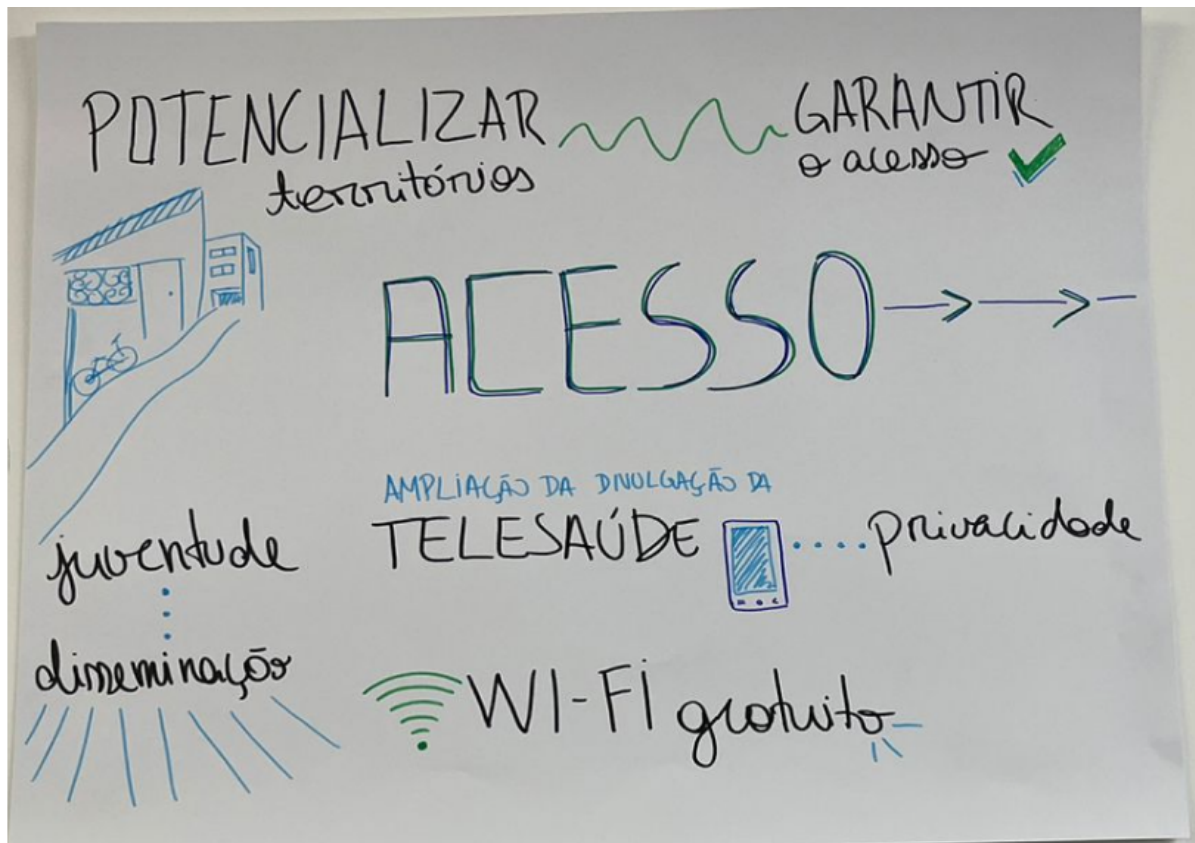 POTENCIALIZAR
territórios
GARANTIR
o acesso
ACESSO
AMPLIAÇÃO DA DIVULGAÇÃO DA
TELESAÚDE
privacidade
juventude
disseminação
WI-FI gratuito